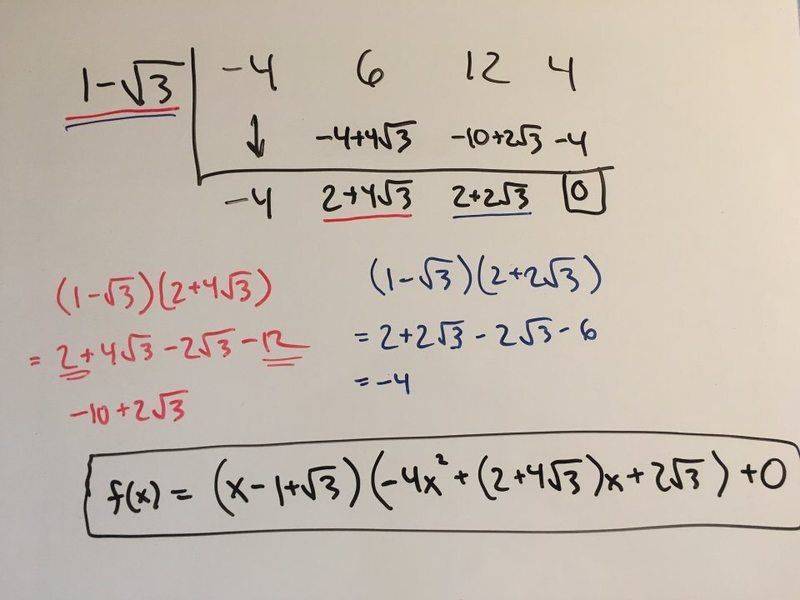 1-√3 | -4 6 12 4
↓ -4+4√3 -10+2√3 -4
-4 2+4√3 2+2√3 0
(1-√3)(2+4√3)
= 2+4√3-2√3-12
-10+2√3
(1-√3)(2+2√3)
= 2+2√3-2√3-6
= -4
f(x) = (x-1+√3)(-4x²+(2+4√3)x+2√3)+0